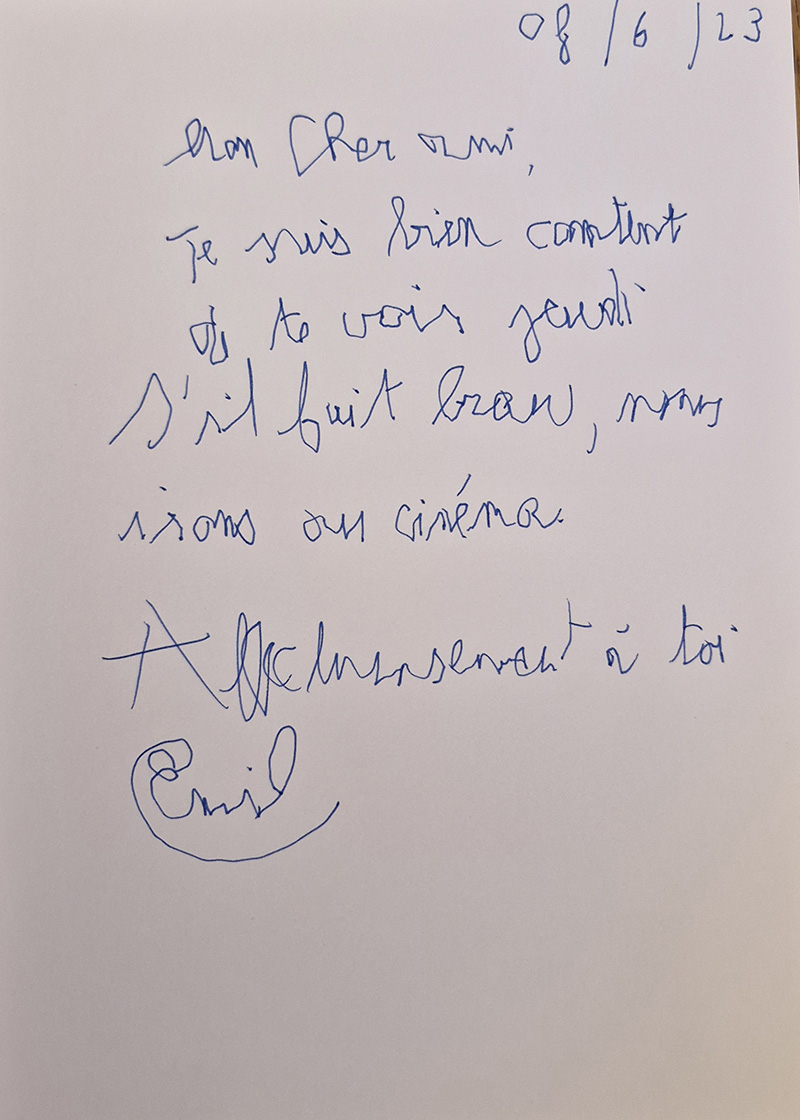 08/6/23
Mon Cher ami,
Je suis bien content
de te vois jeudi
S'il fait beau, nous
irons au cinéma.
Affectueusement à toi
Emil